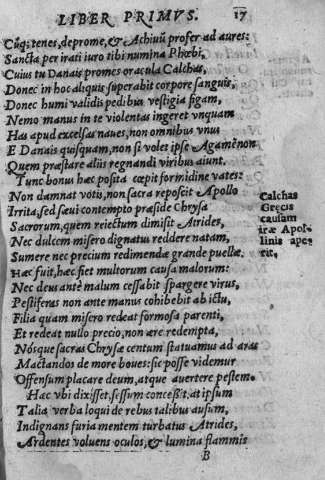 LIBER PRIMVS. 17
Cūq; tenes, deprome, & Achiuû profer ad aures:
Sancta per irati iuro tibi numina Phœbi,
Cuius tu Danais promes oracula Calchas,
Donec in hoc aliquis superabit corpore sanguis,
Donec humi validis pedibus vestigia figam,
Nemo manus in te violentas ingeret vnquam
Has apud excelsas naues, non omnibus vnus
E Danais quisquam, non si volet ipse Agamēnon
Quem præstare alijs regnandi viribus aiunt.
Tunc bonus hæc posita cœpit formidine vates:
Non damnat votis, non sacra reposcit Apollo
Irrita, sed sæui contempto præside Chrysa
Sacrorum, quem reiectum dimisit Atrides,
Nec dulcem misero dignatus reddere natam,
Sumere nec precium redimendæ grande puellæ.
Hæc fuit, hæc fiet multorum causa malorum:
Nec deus ante malum cessabit spargere virus,
Pestiferas non ante manus cohibebit ab ictu,
Filia quam misero redeat formosa parenti,
Et redeat nullo precio, non ære redempta,
Nósque sacras Chrysæ centum statuamus ad aras
Mactandos de more boues: sic posse videmur
Offensum placare deum, atque auertere pestem.
Hæc vbi dixisset, sessum concessit, at ipsum
Talia verba loqui de rebus talibus ausum,
Indignans furia mentem turbatus Atrides,
Ardentes voluens oculos, & lumina flammis
B
Calchas
Grecis
causam
iræ Apol-
linis ape-
rit,